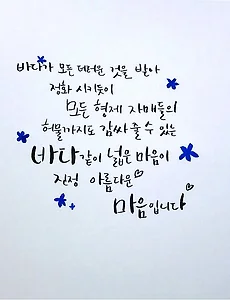 바다가 모든 더러운 것을 받아
정화 시키듯이
모든 형제 자매들의
허물까지도 감싸 줄 수 있는
바다같이 넓은 마음이
진정 아름다운
마음입니다